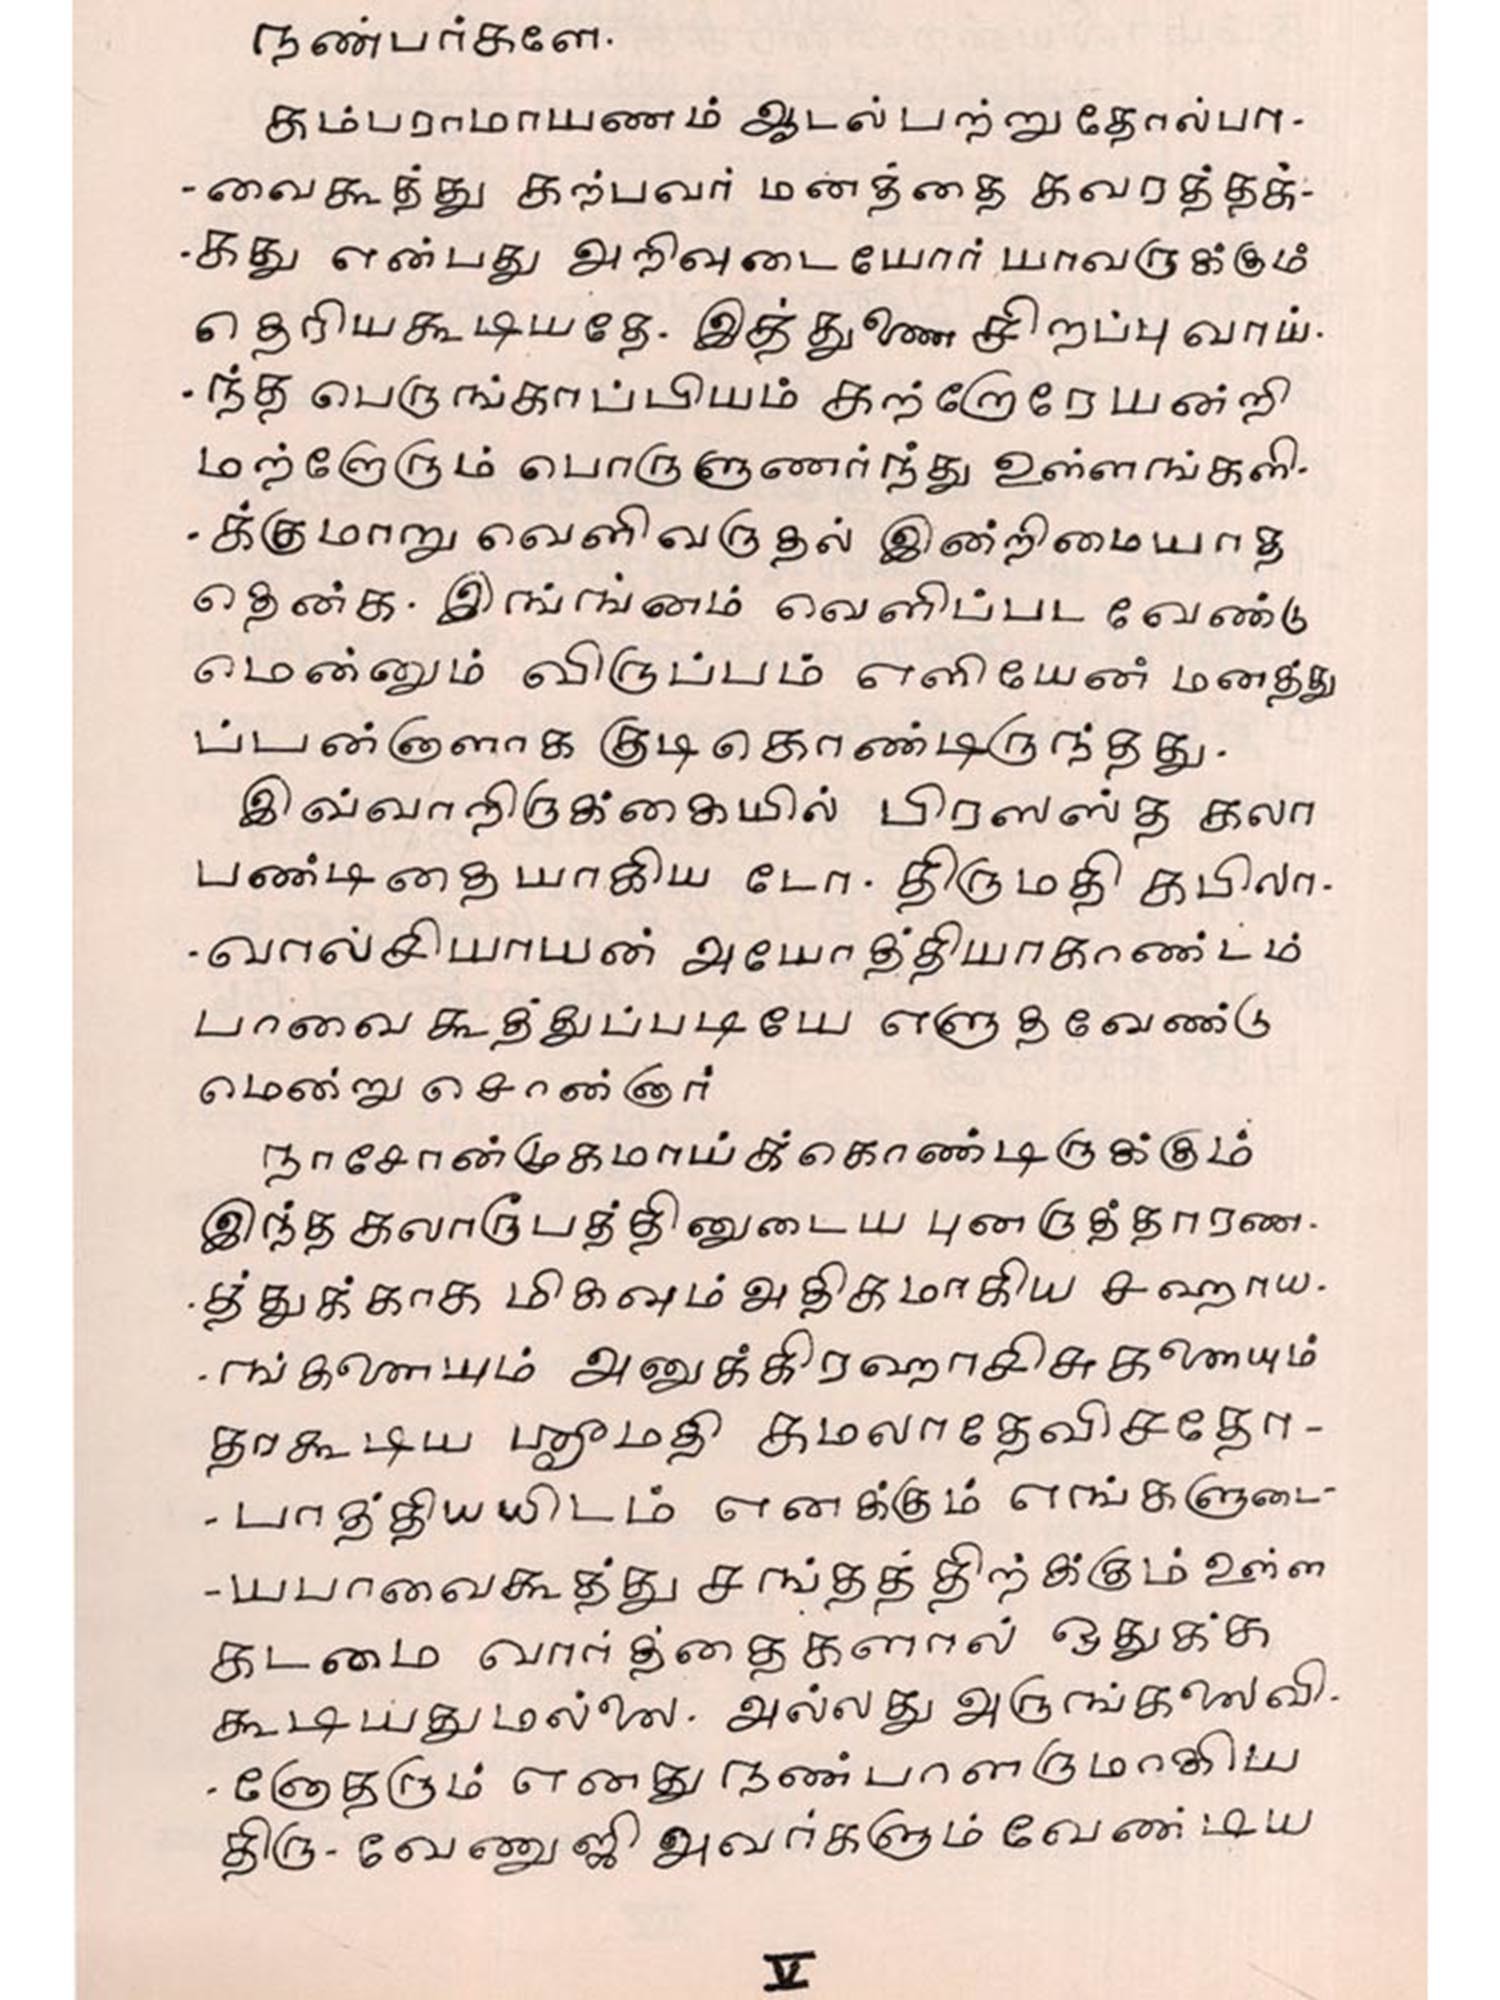 நண்பர்களே.
கம்பராமாயணம் ஆடல்பற்று தோல்பா-
-வைகூத்து கற்பவர் மனத்தை கவரத்தக்-
-கது என்பது அறிவுடையோர் யாவருக்கும்
தெரியகூடியதே. இத்துணை சிறப்பு வாய்-
-ந்த பெருங்காப்பியம் கற்றோரேயன்றி
மற்றோரும் பொருளுணர்ந்து உள்ளங்களி-
-க்குமாறு வெளிவருதல் இன்றிமையாத
தென்க. இங்ங்னம் வெளிப்பட வேண்டு
மென்னும் விருப்பம் எளியேன் மனத்து
ப்பன்னாளாக குடிகொண்டிருந்தது.
இவ்வாறிருக்கையில் பிரஸஸ்த கலா
பண்டிதையாகிய டோ. திருமதி கபிலா-
-வால்சியாயன் அயோத்தியாகாண்டம்
பாவை கூத்துப்படியே எளுதவேண்டு
மென்று சொன்னார்
நாசோன்முகமாய்க்கொண்டிருக்கும்
இந்த கலாரூபத்தினுடைய புனருத்தாரண-
-த்துக்காக மிகவும்அதிகமாகிய சஹாய-
-ங்களையும் அனுக்கிரஹாசிசுகளையும்
தரகூடிய ஸ்ரீமதி கமலாதேவிசதோ-
-பாத்தியயிடம் எனக்கும் எங்களுடை-
-யபாவைகூத்து சங்தத்திற்க்கும் உள்ள
கடமை வார்த்தைகளால் ஒதுக்க
கூடியதுமல்லை. அல்லது அருங்கலைவி-
-னோதரும் எனது நண்பாளருமாகிய
திரு- வேணுஜி அவர்களும் வேண்டிய
V